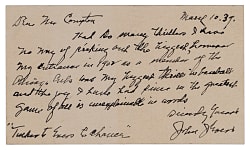 March 10.39.
Dear Mr Compton
Had so many thrillers I have
no way of picking out the biggest however
my entrance in 1902 as a member of the
Chicago Cubs was my biggest thrill in baseball
and the joy I have had since in the greatest
game of all is unexplainable in words
Sincerely Yours
"Tinker to Evers to Chance" John J Evers